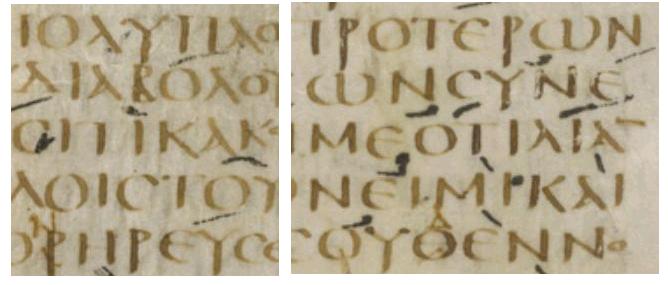 ΠΟΛΥΠΛΟ
ΔΙΑΒΟΛΟΥ
ΕΠΙΚΑΚΟ
ΛΟΙϹΤΟΥ
ΟΡΗΡΕΥϹΕ
ΠΡΟΤΕΡΩΝ
ΩΝϹΥΝΕ
ΙΜΕΟΤΙΔΙΑ
ΝΕΙΜΙΚΑΙ
ϹΟΥΘΕΝΝΟ